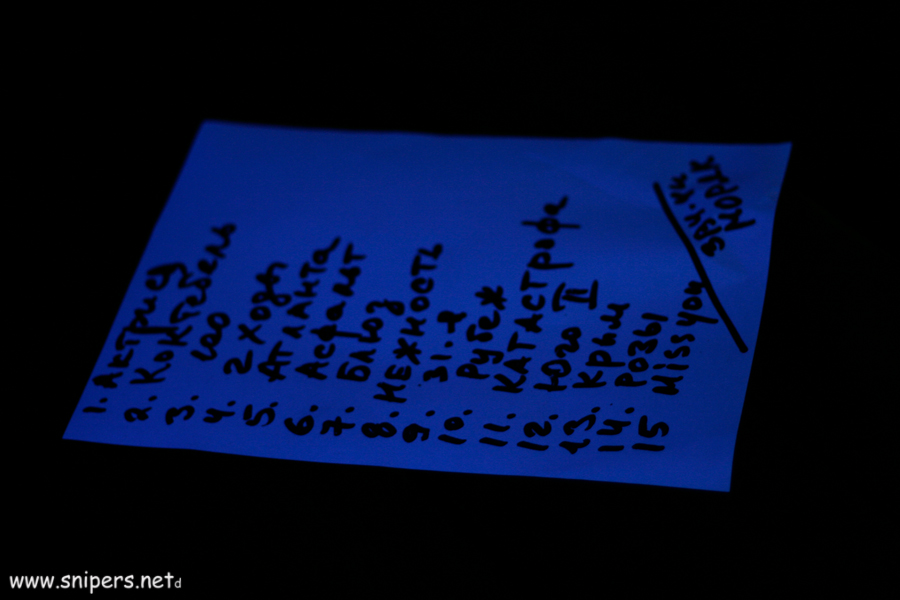 1. Актриса
2. Коктебель
3.
4. 2 ходы
5. Атланта
6. Асфальт
7. Блюз
8. НЕЖНОСТЬ
9. 31-я
10. Рубеж
11. КАТАСТРОФА
12. Юго II
13. Крым
14. РОЗЫ
15 Miss you
МОРЯК
www.snipers.net d